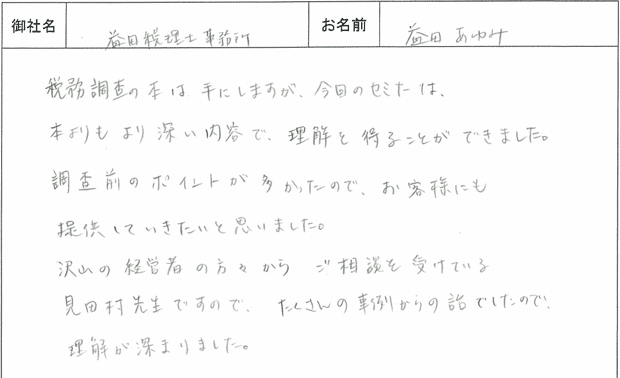 御社名 益田税理士事務所 お名前 益田 あゆみ
税務調査の本は手にしますが、今回のセミナーは、
本よりもより深い内容で、理解を得ることができました。
調査前のポイントが多かったので、お客様にも
提供していきたいと思いました。
沢山の経営者の方々からご相談を受けている
見田村先生ですので、たくさんの事例からの話でしたので、
理解が深まりました。